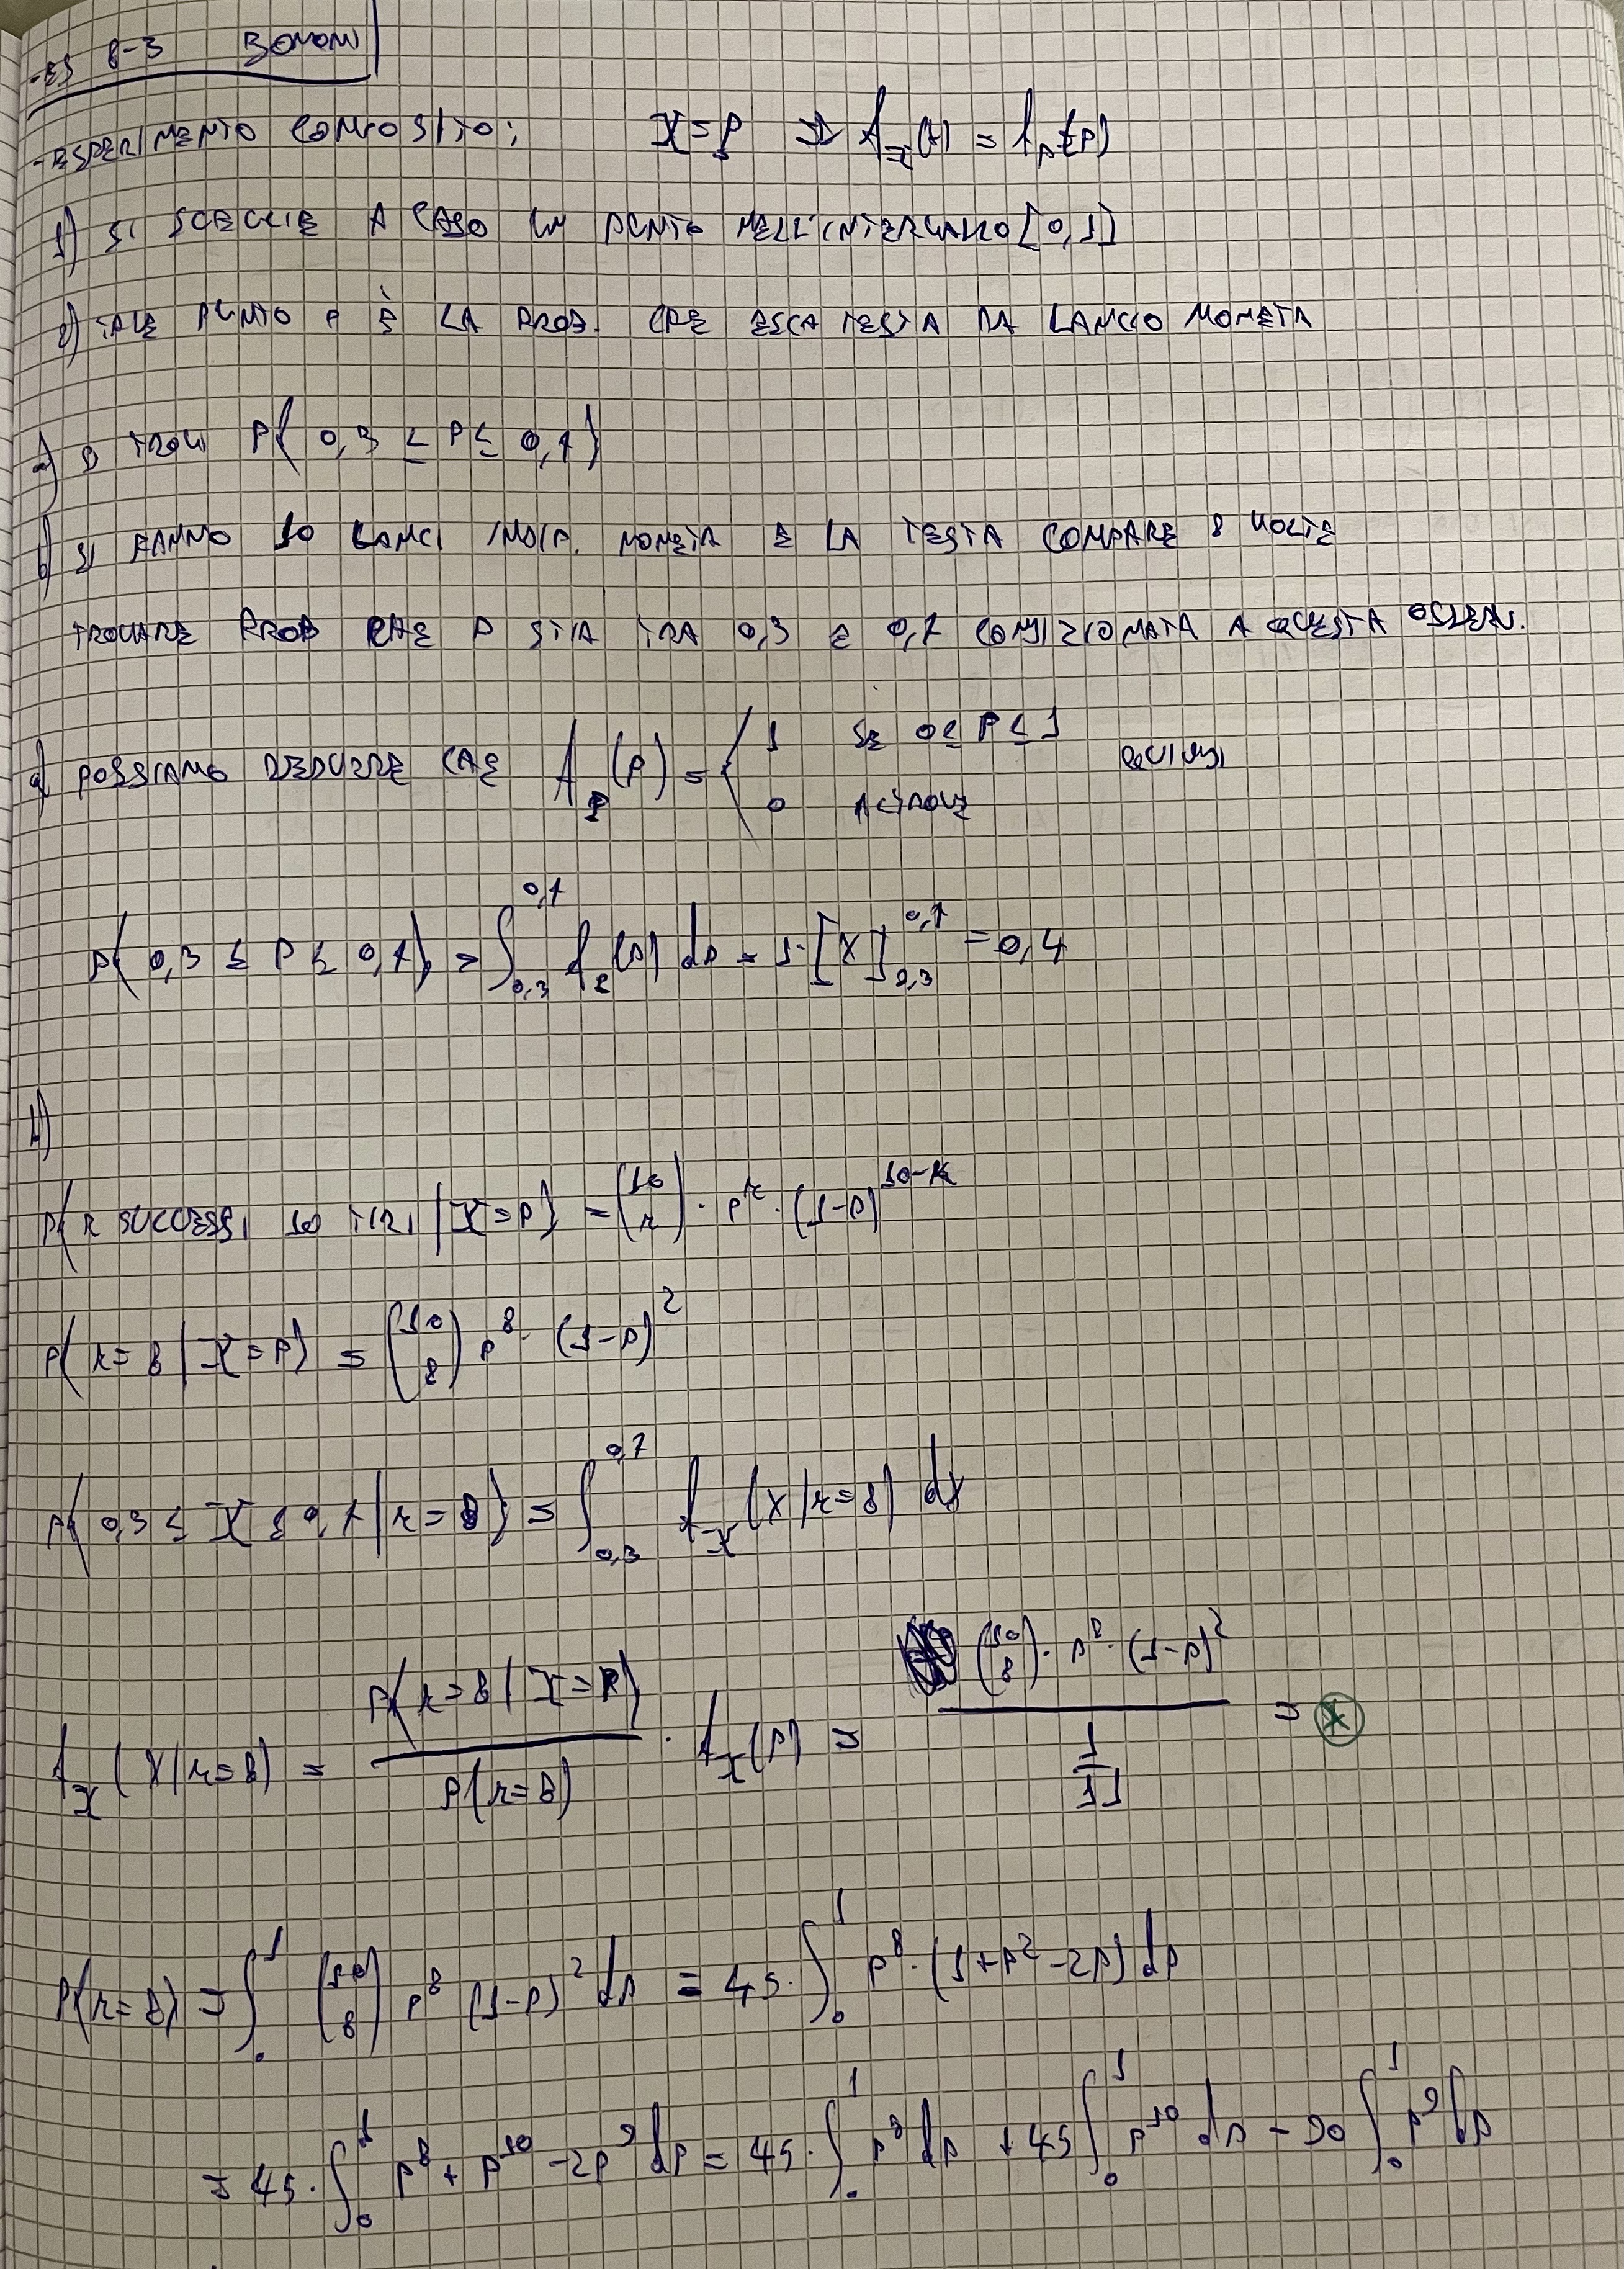 -ES 8-3 BONONI
-ESPERIMENTO COMPOSITO: X=p ⇒ f_X(x) = f_p(p)
1) SI SCEGLIE A CASO UN PUNTO NELL'INTERVALLO [0,1]
2) TALE PUNTO P È LA PROB. CHE ESCA TESTA DA LANCIO MONETA
a) SI TROVI P{0,3 ≤ P ≤ 0,7}
b) SI FANNO 10 LANCI INDIP. MONETA E LA TESTA COMPARE 8 VOLTE
TROVARE PROB CHE P STIA TRA 0,3 E 0,7 CONDIZIONATA A QUESTA OSSERV.
a) POSSIAMO DEDURRE CHE f_P(p) = { 1 SE 0 ≤ P ≤ 1 QUINDI
0 ALTROVE
P{0,3 ≤ P ≤ 0,7} = ∫_{0,3}^{0,7} f_P(p) dp = 1·[X]_{0,3}^{0,7} = 0,4
b)
P{k SUCCESSI 10 TIRI | X=p} = (10 k) · p^k · (1-p)^{10-k}
P{k=8 | X=p} = (10 8) p^8 · (1-p)^2
P{0,3 ≤ X ≤ 0,7 | k=8} = ∫_{0,3}^{0,7} f_X(x|k=8) dx
f_X(x|k=8) = P{k=8 | X=p} / P{k=8} · f_X(p) = (10 8) · p^8 · (1-p)^2 / (1/11) = *
P{k=8} = ∫_0^1 (10 8) p^8 (1-p)^2 dp = 45 · ∫_0^1 p^8 · (1+p^2-2p) dp
= 45 · ∫_0^1 p^8 + p^10 - 2p^9 dp = 45 · ∫_0^1 p^8 dp + 45 ∫_0^1 p^10 dp - 90 ∫_0^1 p^9 dp